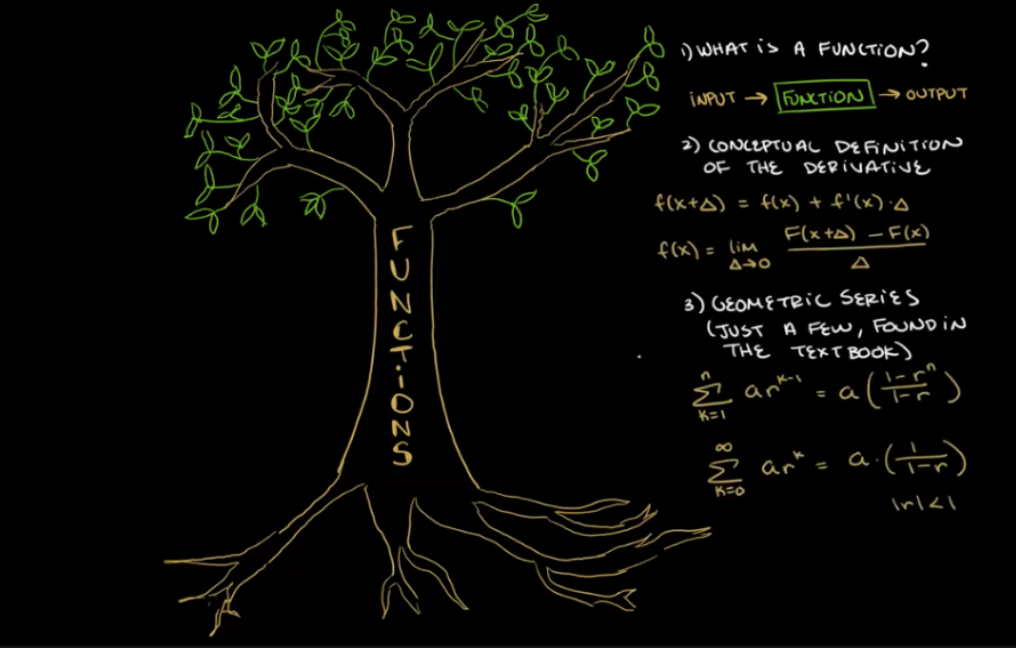 FUNCTIONS
1) WHAT IS A FUNCTION?
INPUT → FUNCTION → OUTPUT
2) CONCEPTUAL DEFINITION
OF THE DERIVATIVE
f(x+Δ) = f(x) + f'(x)·Δ
f(x) = lim Δ→0 F(x+Δ) - F(x) / Δ
3) GEOMETRIC SERIES
(JUST A FEW, FOUND IN
THE TEXTBOOK)
n Σ k=1 ar^k-1 = a (1-r^n / 1-r)
∞ Σ k=0 ar^k = a · (1 / 1-r)
|r|<1